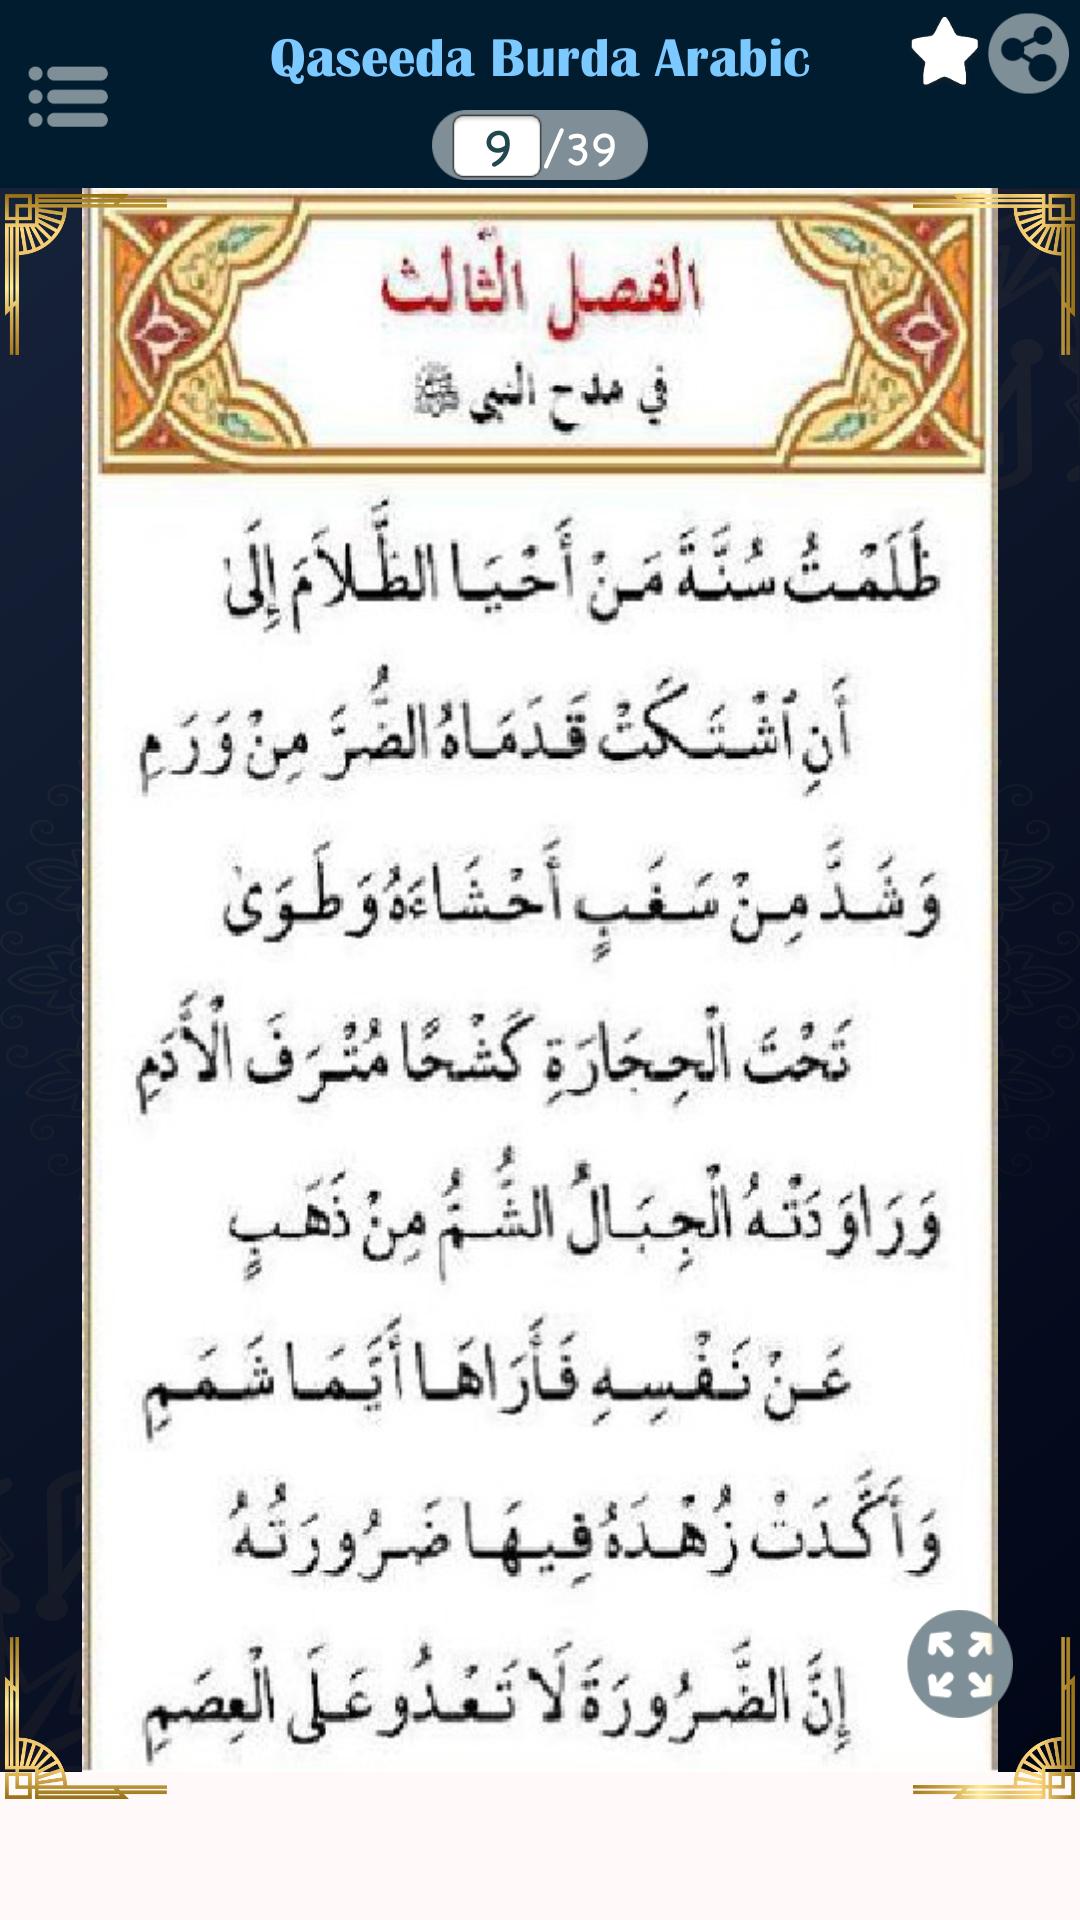 Qaseeda Burda Arabic
9 /39
الفصل الثّالث
في مدح النبي ﷺ
ظَلَمْتُ سُنَّةَ مَنْ أَحْيَا الظَّلاَمَ إِلَىٰ
أَنِ ٱشْتَكَتْ قَدَمَاهُ الضُّرَّ مِنْ وَرَمِ
وَشَدَّ مِنْ سَغَبٍ أَحْشَاءَهُ وَطَوَىٰ
تَحْتَ الْحِجَارَةِ كَشْحًا مُتْرَفَ الْأَدَمِ
وَرَاوَدَتْهُ الْجِبَالُ الشُّمُّ مِنْ ذَهَبٍ
عَنْ نَفْسِهِ فَأَرَاهَا أَيَّمَا شَمَمِ
وَأَكَّدَتْ زُهْدَهُ فِيهَا ضَرُورَتُهُ
إِنَّ الضَّرُورَةَ لَا تَعْدُو عَلَى الْعِصَمِ